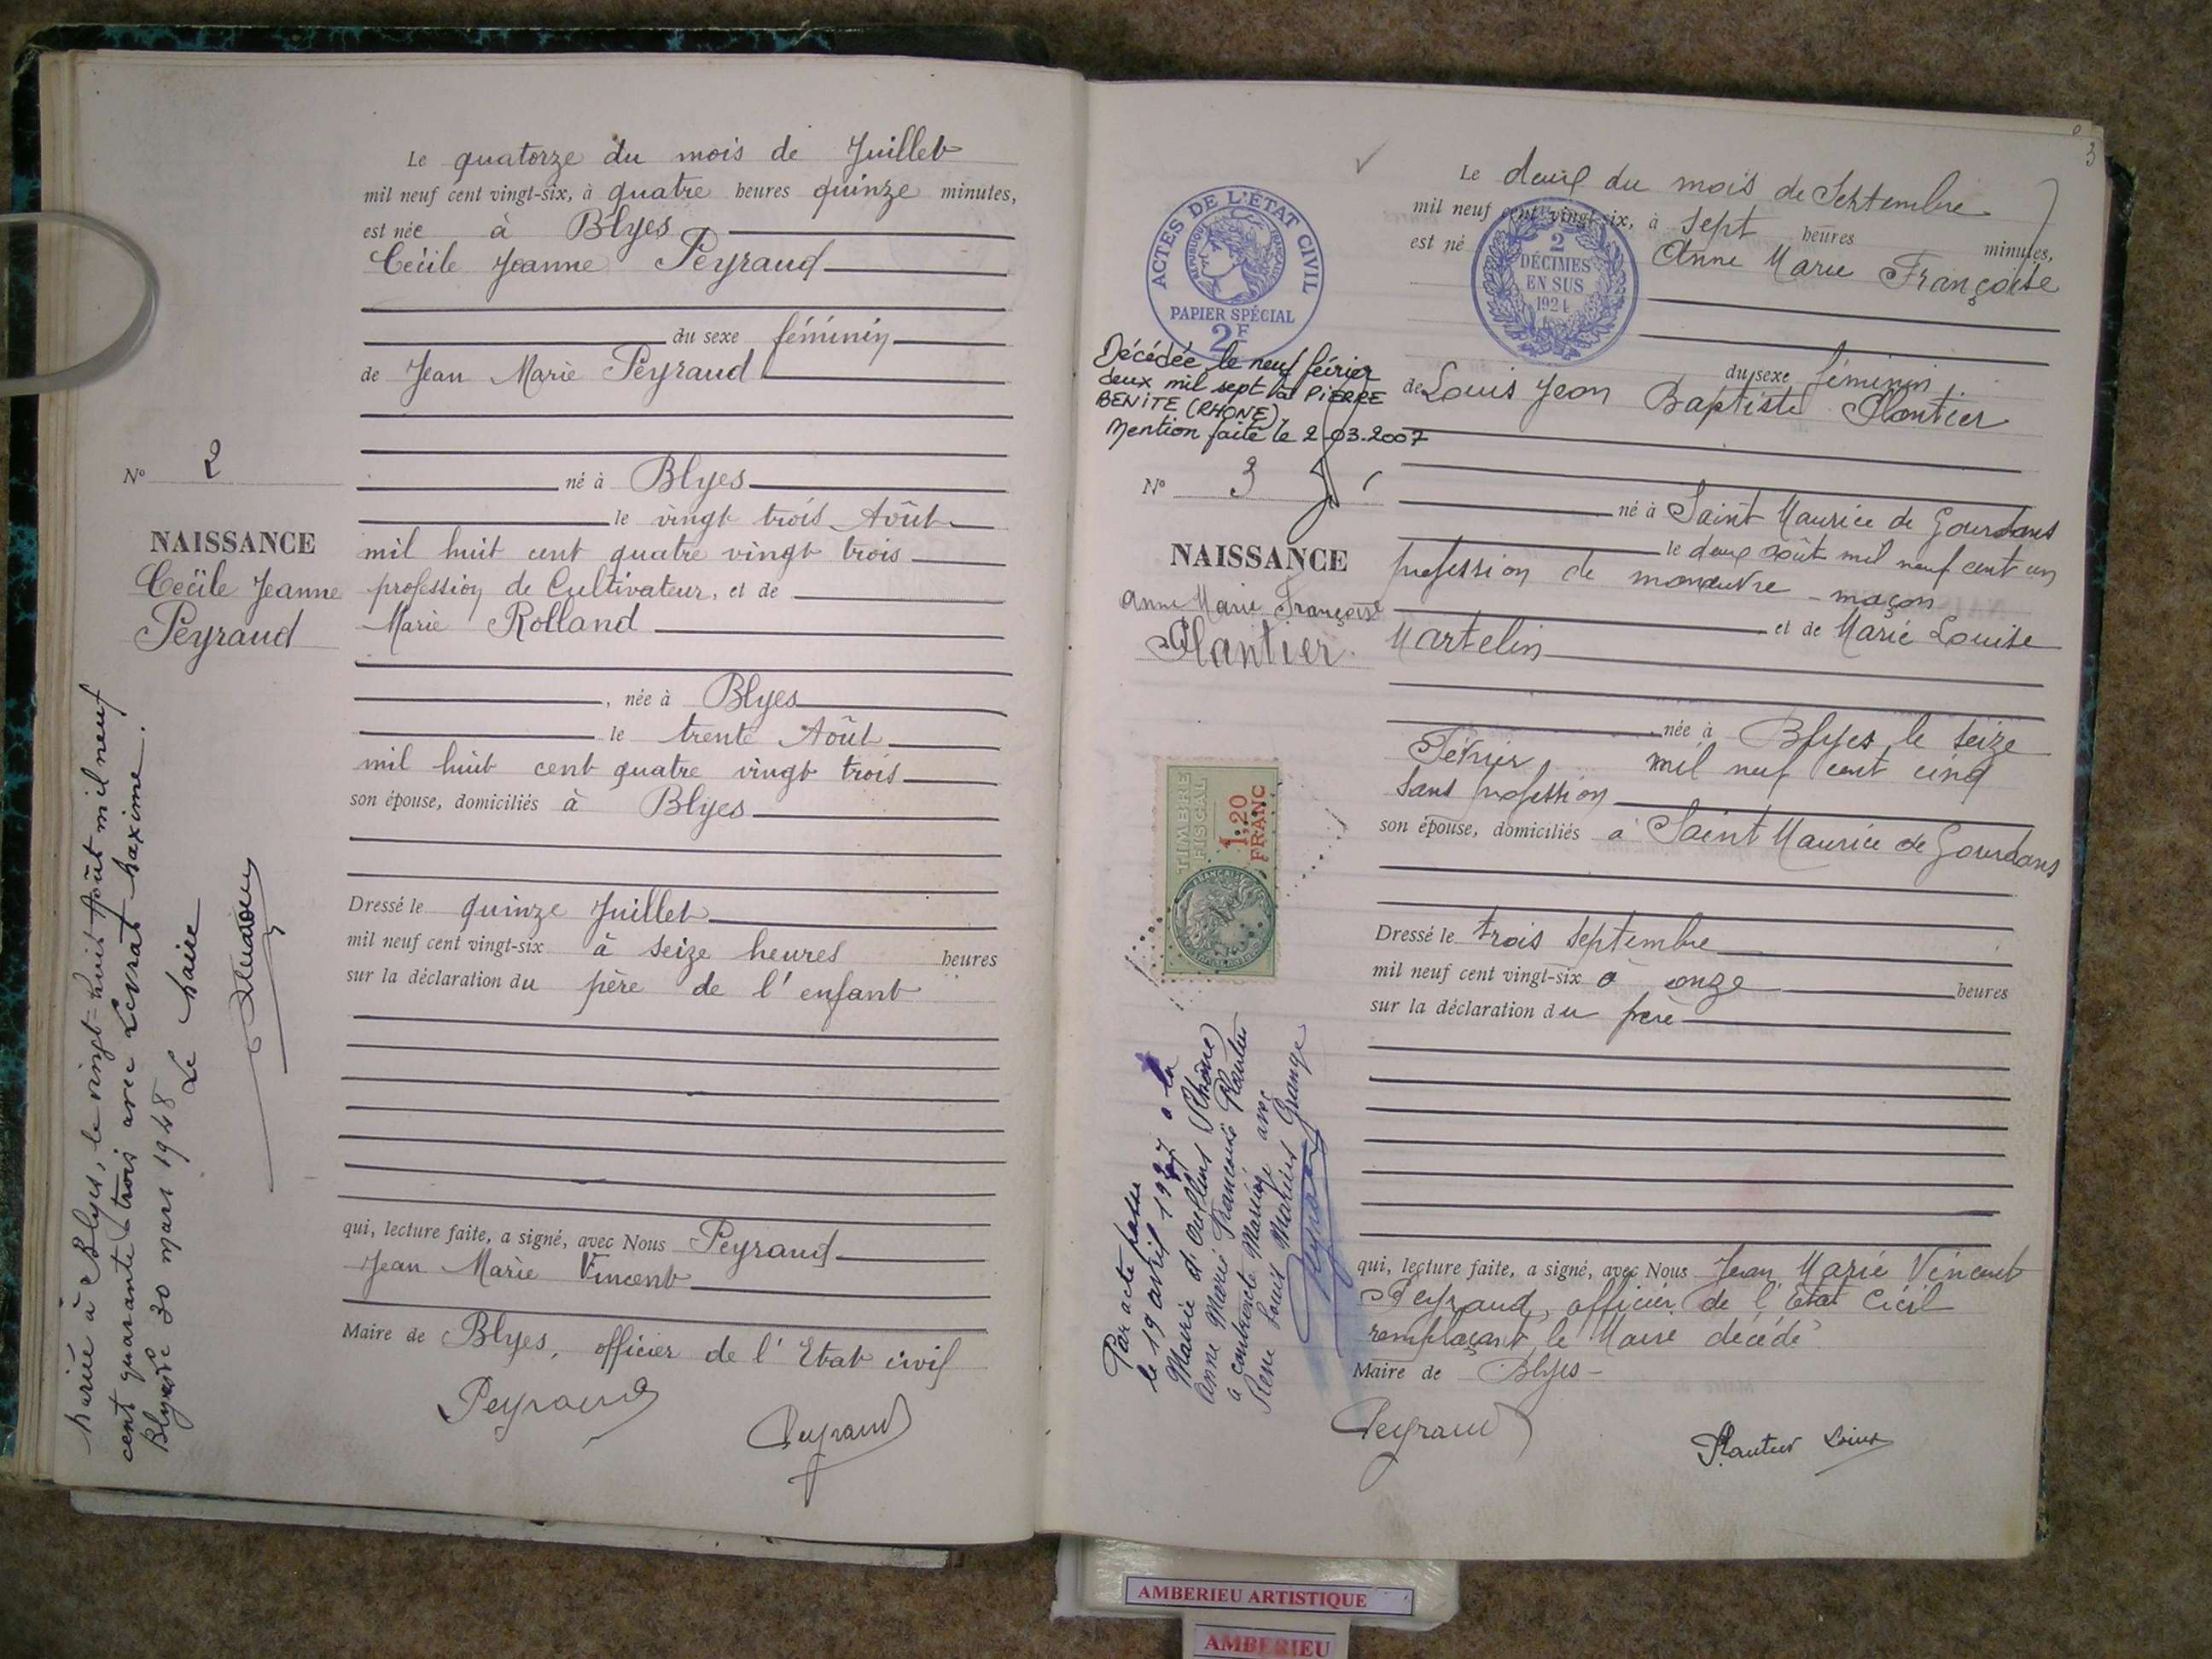 Le quatorze du mois de Juillet
mil neuf cent vingt-six, à quatre heures quinze minutes,
est née à Blyes
Cécile Jeanne Peyraud
du sexe féminin
de Jean Marie Peyraud
N° 2
né à Blyes
le vingt trois Août
NAISSANCE
Cécile Jeanne
Peyraud
mil huit cent quatre vingt trois
profession de Cultivateur, et de
Marie Rolland
, née à Blyes
le trente Août
mil huit cent quatre vingt trois
son épouse, domiciliés à Blyes
Dressé le quinze Juillet
mil neuf cent vingt-six à seize heures heures
sur la déclaration du père de l'enfant
qui, lecture faite, a signé, avec Nous Peyraud
Jean Marie Vincent
Maire de Blyes, officier de l'Etat civil
Peyraud
Peyraud
Mariée à Blyes, le vingt-huit Août mil neuf
cent quarante trois avec Levrat Maxime.
Blyes le 30 mars 1948
Le Maire
3
Le deux du mois de Septembre
mil neuf cent vingt-six, à sept heures minutes,
est né Anne Marie Françoise
ACTES DE L'ÉTAT CIVIL
RÉPUBLIQUE FRANÇAISE
PAPIER SPÉCIAL
2F
2
DÉCIMES
EN SUS
1924
du sexe féminin
de Louis Jean Baptiste Plantier
Décédée le neuf février
deux mil sept à PIERRE
BENITE (RHONE)
Mention faite le 2-03-2007
N° 3
né à Saint Maurice de Gourdans
le deux août mil neuf cent un
NAISSANCE
Anne Marie Françoise
Plantier
profession de manœuvre - maçon
et de Marie Louise
Martelin
née à Blyes le seize
Février mil neuf cent cinq
sans profession
son épouse, domiciliés à Saint Maurice de Gourdans
TIMBRE
FISCAL
1,20
FRANC
Dressé le trois septembre
mil neuf cent vingt-six à onze heures
sur la déclaration du père
qui, lecture faite, a signé, avec Nous Jean Marie Vincent
Peyraud, officier de l'Etat Civil
remplaçant le Maire décédé
Maire de Blyes -
Peyraud
Plantier Louis
Par acte passé
le 19 avril 1947 à la
Mairie d'Oullins (Rhône)
Anne Marie Françoise Plantier
a contracté Mariage avec
René Louis Marius Grange
Peyraud
AMBERIEU ARTISTIQUE
AMBERIEU